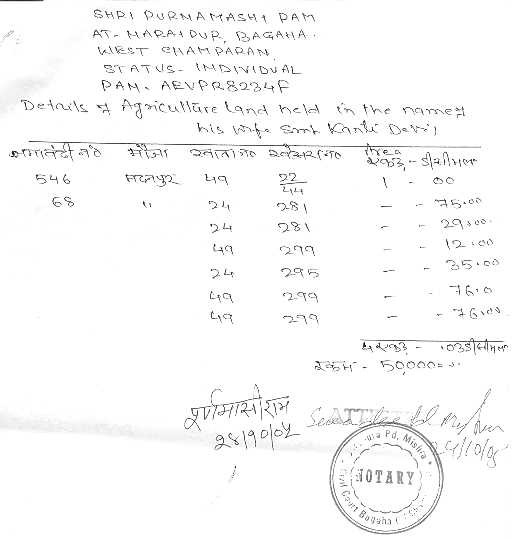 SHRI PURNAMASHI RAM
AT- NARAIPUR, BAGAHA.
WEST CHAMPARAN
STATUS- INDIVIDUAL
PAN. AEVPR8234F
Details of Agriculture land held in the name of
his wife Smt Kanti Devi
जमाबंदी नं० मौजा खाता नं० खेसरा नं० Area
एकड़ - डिसीमल
546 मदनपुर 49 22/44 1 - 00
68 " 24 281 - - 75.00
24 281 - - 29.00.
49 299 - - 12.00
24 295 - - 35.00
49 299 - - 76.0
49 299 - - 76.00
4 एकड़ - .03 डिसीमल
रकम - 50,000=00
पूर्णमासी राम
28/10/05
ATTESTED
Pd. Mishra
NOTARY
Civil Court Bagaha